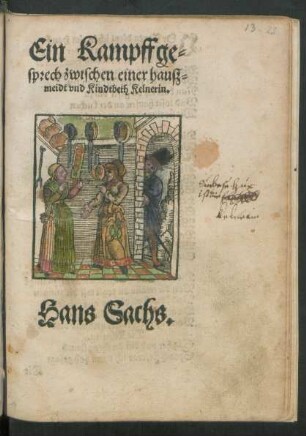 Ein Kampffge-
sprech zwischen einer hauß-
meidt vnd Kindtbeth Kelnerin.
Hans Sachs.